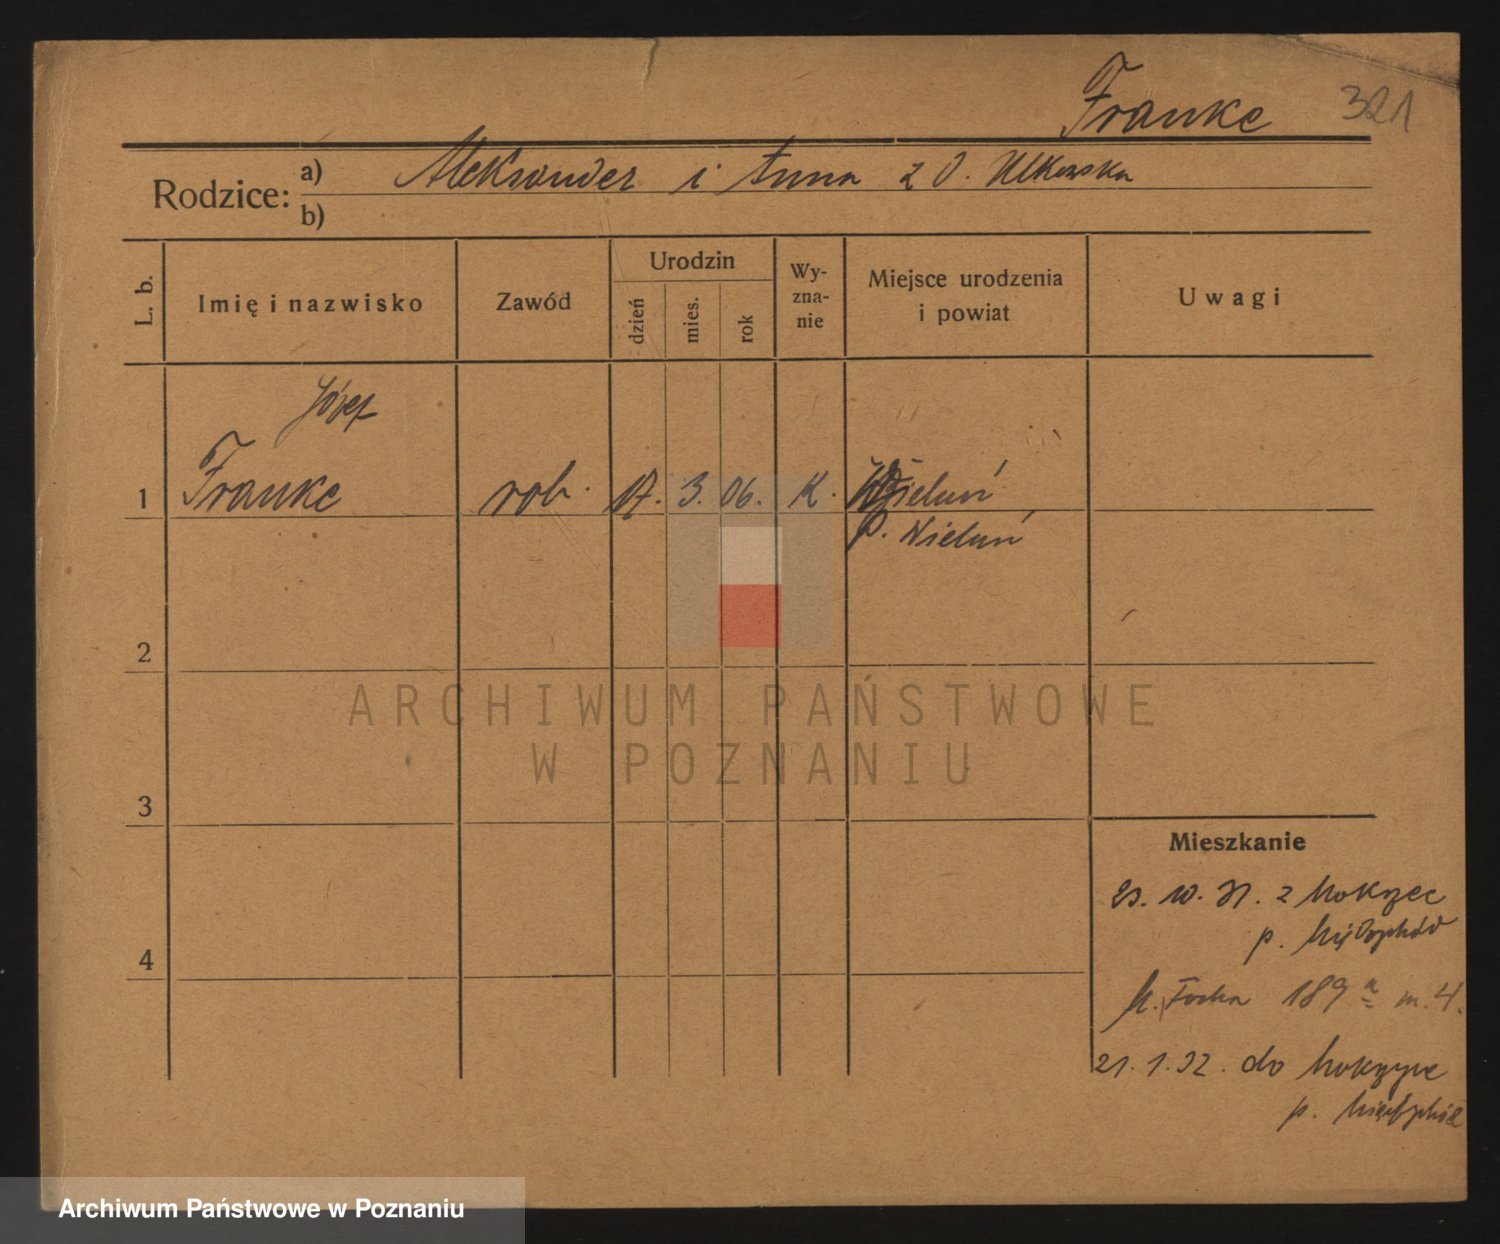 Franke 321
Rodzice: a) Aleksander i Anna z d.
b)
L. b. Imię i nazwisko Zawód Urodzin dzień mies. rok Wy-zna-nie Miejsce urodzenia i powiat Uwagi
Józef
1 Franke rob. 17. 3. 06. K. Wieluń
p. Wieluń
2
ARCHIWUM PAŃSTWOWE
W POZNANIU
3
Mieszkanie
10. 31. z
p.
4
M. Focha 189 a m. 4.
21. 1. 32. do
p.
Archiwum Państwowe w Poznaniu